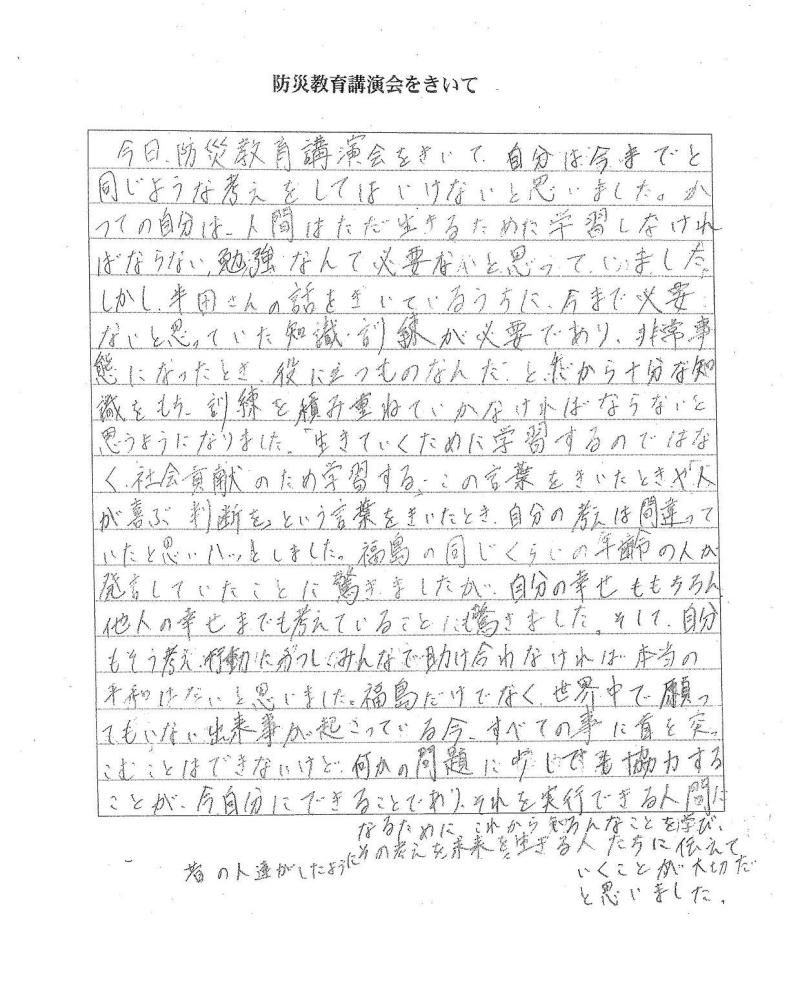 防災教育講演会をきいて
今日、防災教育講演会をきいて、自分は今までと
同じような考えをしてはいけないと思いました。か
つての自分は、人間はただ生きるために学習しなけれ
ばならない、勉強なんて必要ないと思っていました。
しかし、半田さんの話をきいているうちに、今まで必要
ないと思っていた知識・訓練が必要であり、非常事
態になったとき、役に立つものなんだ、と、だから十分な知
識をもち、訓練を積み重ねていかなければならないと
思うようになりました。「生きていくために学習するのではな
く、社会貢献のため学習する」この言葉をきいたときや「人
が喜ぶ判断を」という言葉をきいたとき、自分の考えは間違って
いたと思いハッとしました。福島の同じくらいの年齢の人が
発言していたことに驚きましたが、自分の幸せももちろん
他人の幸せまでも考えていることにも驚きました。そして、自分
もそう考え、行動にうつしみんなで助け合わなければ本当の
平和はないと思いました。福島だけでなく、世界中で願っ
てもいない出来事が起こっている今、すべての事に首を突っ
こむことはできないけど、何かの問題に少しでも協力する
ことが、今自分にできることであり、それを実行できる人間に
なるために、これから知ろんなことを学び、
昔の人達がしたようにその考えを未来を生きる人たちに伝えて
いくことが大切だ
と思いました。